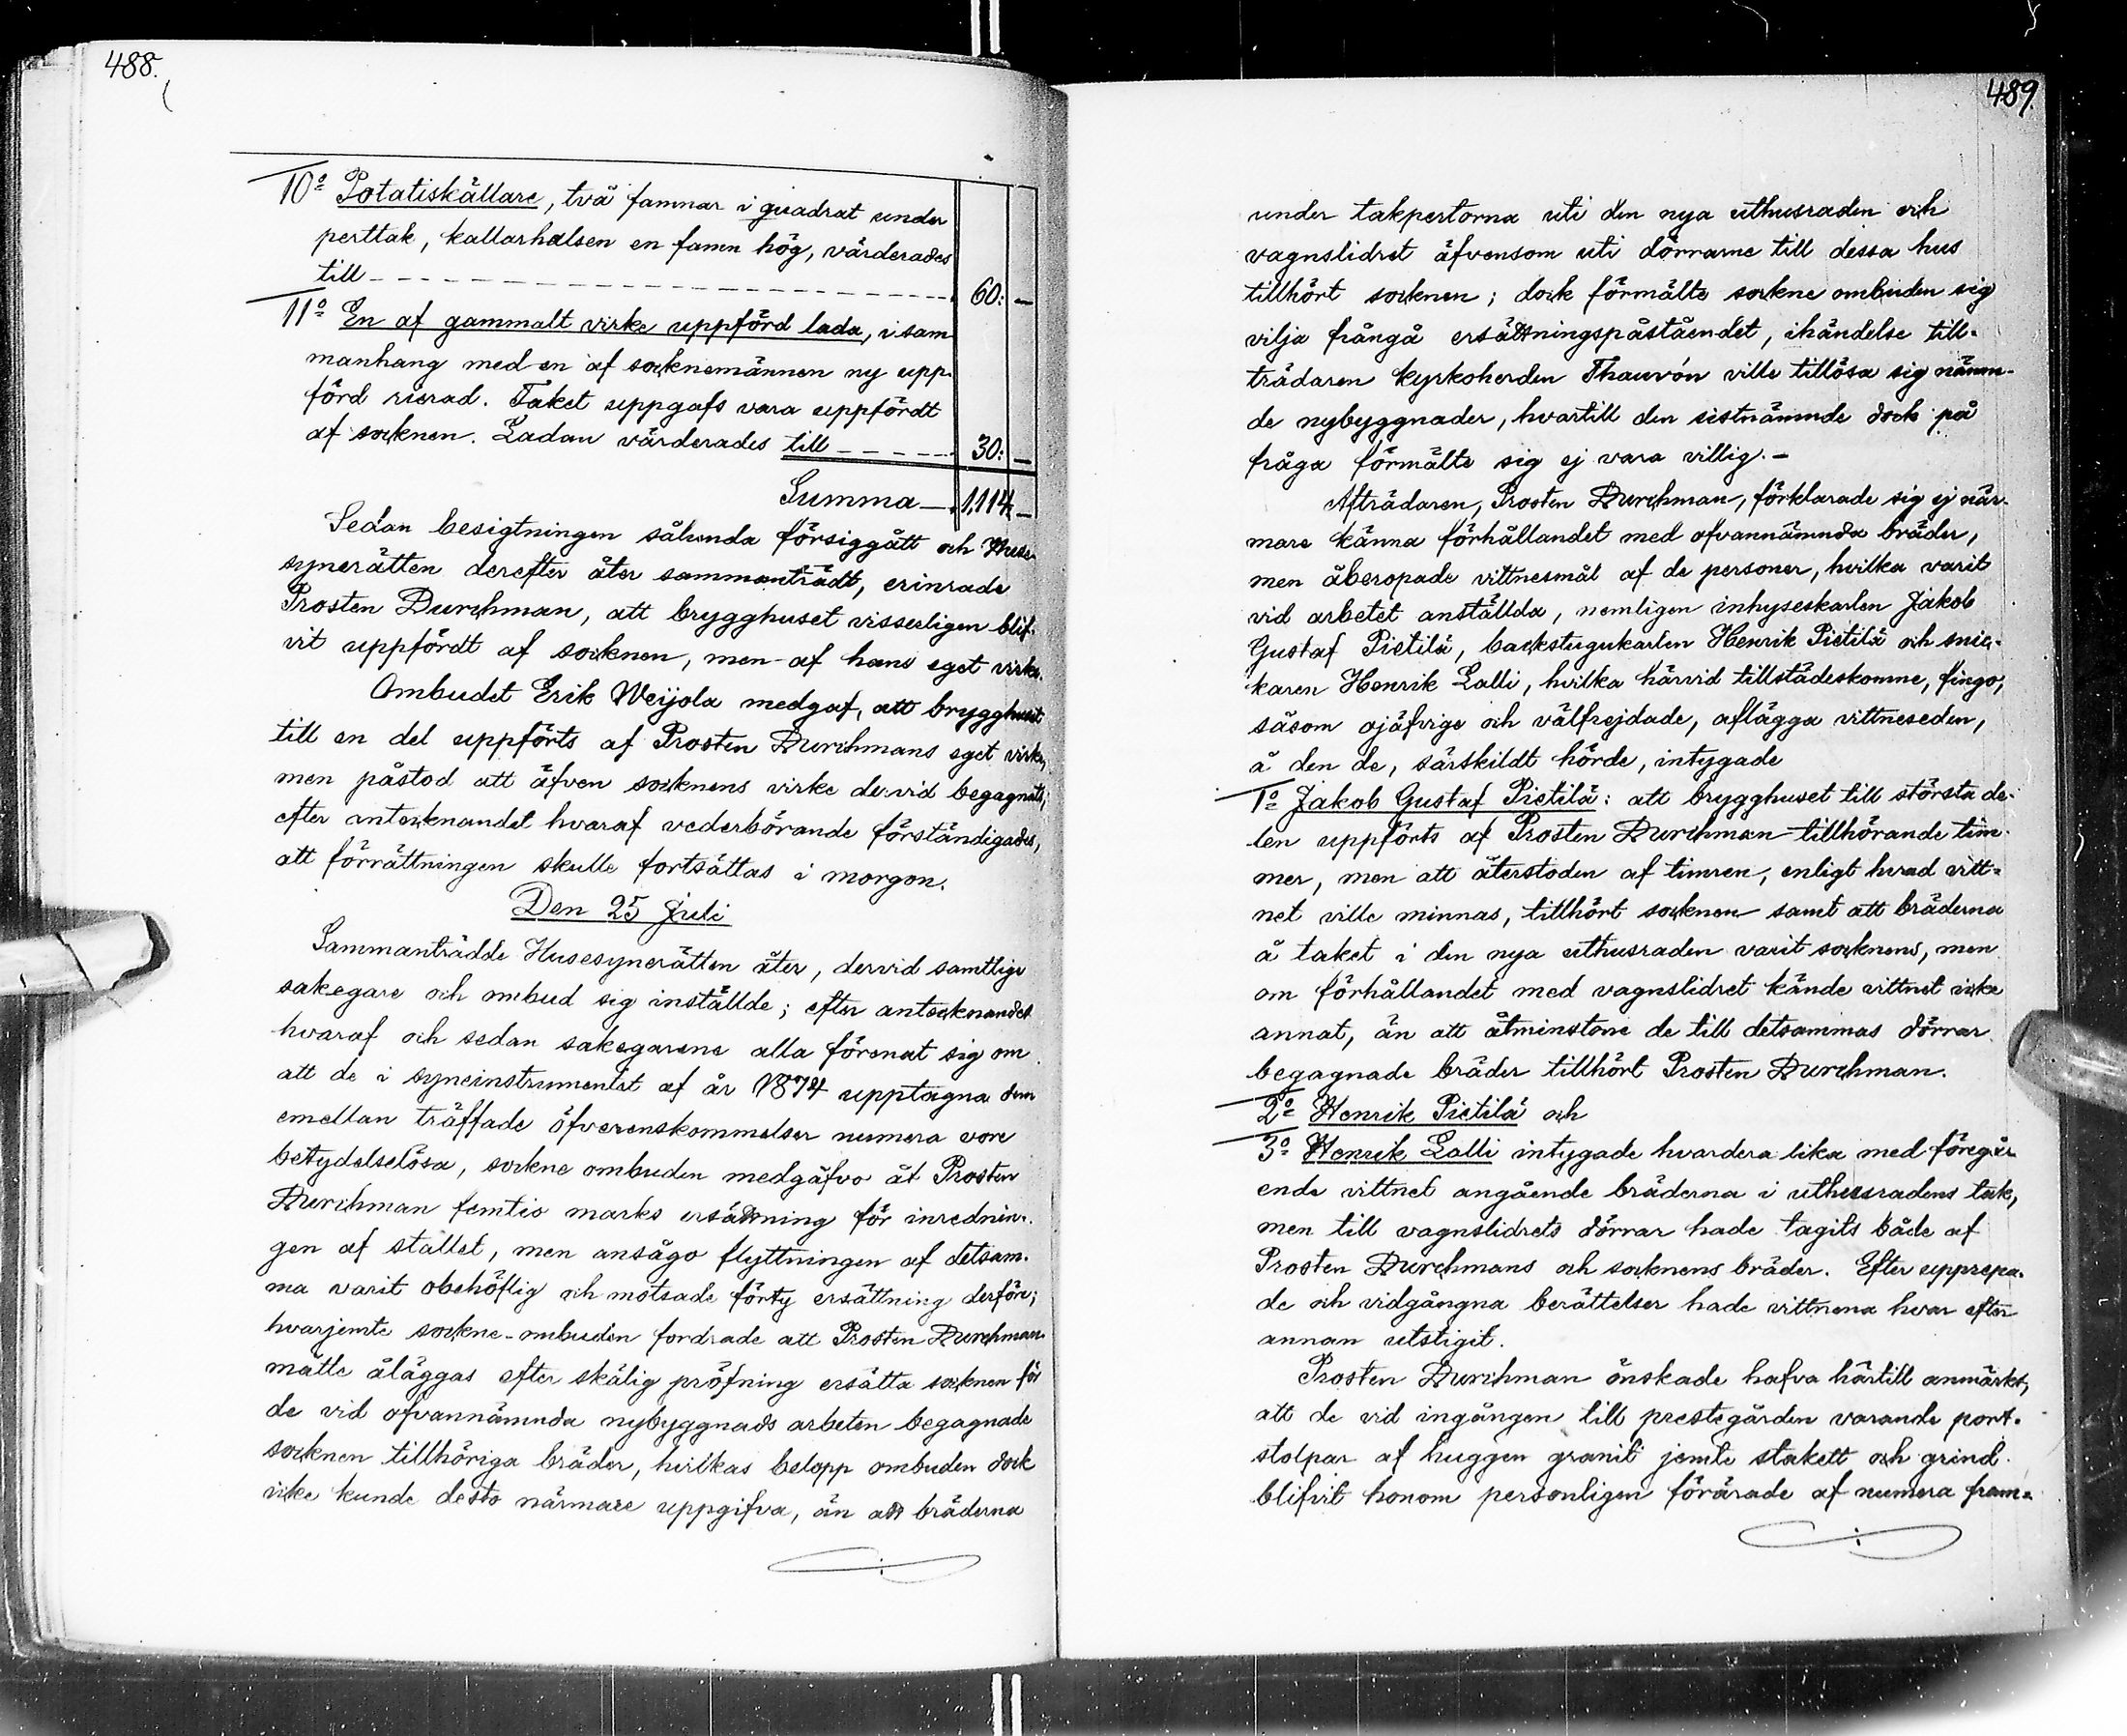 488.
10º Potatiskällare, två famnar i quadrat under
perttak, källarhalsen en famn hög, värderades
till - - - - - - - - - - - - - - - 60: —
11º En af gammalt virke uppförd lada, i sam
manhang med en af socknemännen ny upp-
förd rierad. Taket uppgafs vara uppfördt
af socknen. Ladan värderades till - - - - - 30: —
Summa — 1,114 —
Sedan besigtningen sålunda försiggått och Huse-
synerätten derefter åter sammanträdt, erinrade
Prosten Durchman, att brygghuset visserligen blif-
vit uppfördt af socknen, men af hans eget virke.
Ombudet Erik Weijola medgaf, att brygghuset
till en del uppförts af Prosten Durchmans eget virke,
men påstod att äfven socknens virke dervid begagnats;
efter antecknandet hvaraf vederbörande förständigades,
att förrättningen skulle fortsättas i morgon.
Den 25 Juli
Sammanträdde Husesynerätten åter, dervid samtlige
sakegare och ombud sig inställde; efter antecknandet
hvaraf och sedan sakegarene alla förenat sig om
att de i syneinstrumentet af år 1874 upptagna dem
emellan träffade öfverenskommelser numera vore
betydelselösa, sockne ombuden medgåfvo åt Prosten
Durchman femtio marks ersättning för inrednin-
gen af stallet, men ansågo flyttningen af detsam-
ma varit obehöflig och motsade förty ersättning derför;
hvarjemte sockne-ombuden fordrade att Prosten Durchman
måtte åläggas efter skälig pröfning ersätta socknen för
de vid ofvannämnda nybyggnads arbeten begagnade
socknen tillhöriga bräder, hvilkas belopp ombuden dock
icke kunde desto närmare uppgifva, än att bräderna
489.
under takpertorna uti den nya uthusraden och
vagnslidret äfvensom uti dörrarne till dessa hus
tillhört socknen; dock förmälte sockne ombuden sig
vilja frångå ersättningspåståendet, ihändelse till-
trädaren kyrkoherden Thauvón ville tillösa sig nämn-
de nybyggnader, hvartill den sistnämnde dock på
fråga förmälte sig ej vara villig.—
Afträdaren, Prosten Durchman, förklarade sig ej när-
mare känna förhållandet med ofvannämnda bräder,
men åberopade vittnesmål af de personer, hvilka varit
vid arbetet anställda, nemligen inhyseskarlen Jakob
Gustaf Pietilä, backstugukarlen Henrik Pietilä och snic-
karen Henrik Lalli, hvilka härvid tillstädeskomne, fingo,
såsom ojäfvige och välfrejdade, aflägga vittneseden,
å den de, särskildt hörde, intygade
1º Jakob Gustaf Pietilä: att brygghuset till största de-
len uppförts af Prosten Durchman tillhörande tim-
mer, men att återstoden af timren, enligt hvad vitt-
net ville minnas, tillhört socknen samt att bräderna
å taket i den nya uthusraden varit socknens, men
om förhållandet med vagnslidret kände vittnet icke
annat, än att åtminstone de till detsammas dörrar
begagnade bräder tillhört Prosten Durchman.
2º Henrik Pietilä och
3º Henrik Lalli intygade hvardera lika med föregå-
ende vittnet angående bräderna i uthusradens tak,
men till vagnslidrets dörrar hade tagits både af
Prosten Durchmans och socknens bräder. Efter upprepa-
de och vidgångna berättelser hade vittnena hvar efter
annan utstigit.
Prosten Durchman önskade hafva härtill anmärkt,
att de vid ingången till prestegården varande port-
stolpar af huggen granit jemte stakett och grind
blifvit honom personligen förärade af numera fram-